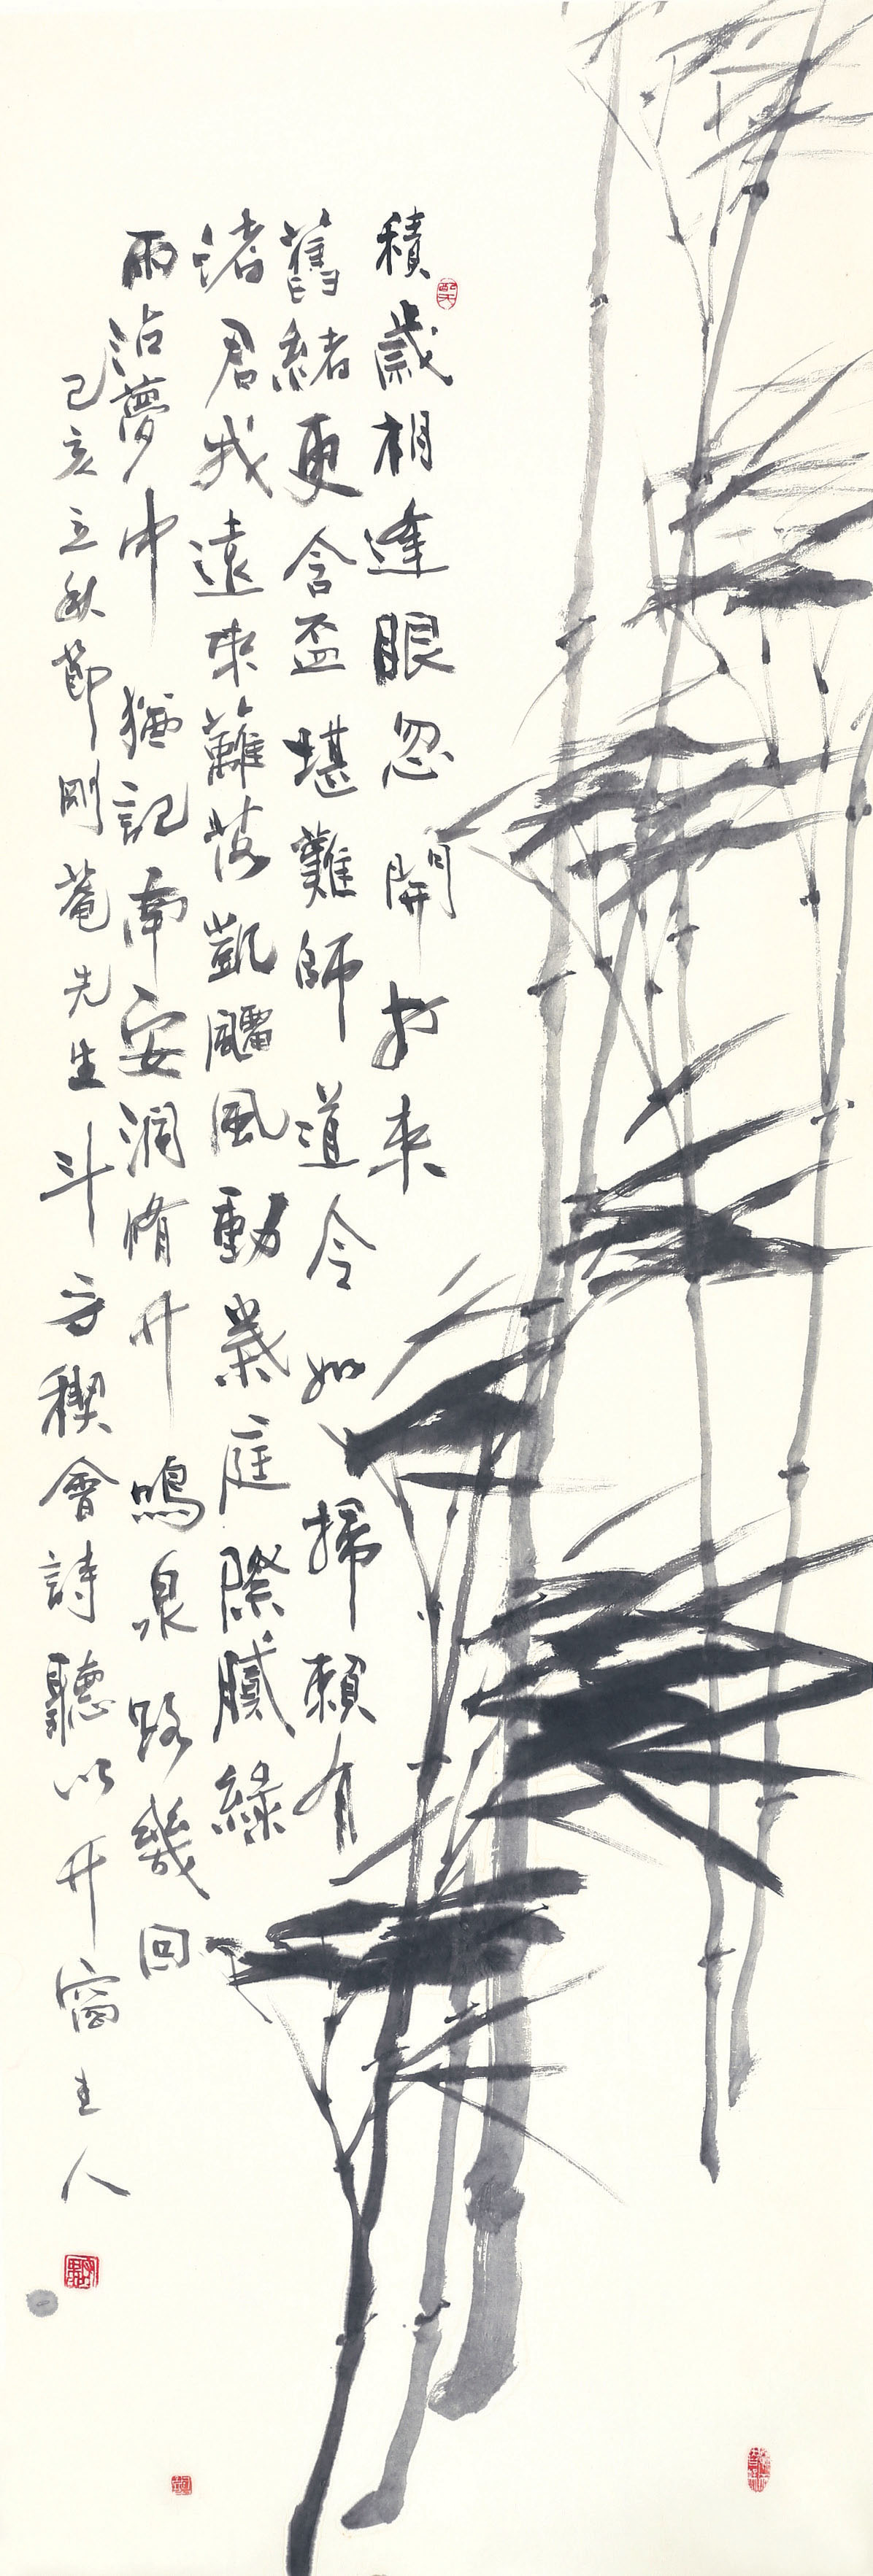 積歲相逢眼忽開來
舊緒更含盃堪難師道今如掃賴有
諸君我遠來蘺落凱風動葉庭際膩綠
雨沾夢中猶記南安澗脩竹鳴泉路幾回
己亥立秋節剛菴先生斗方禊會詩聽以竹窗主人